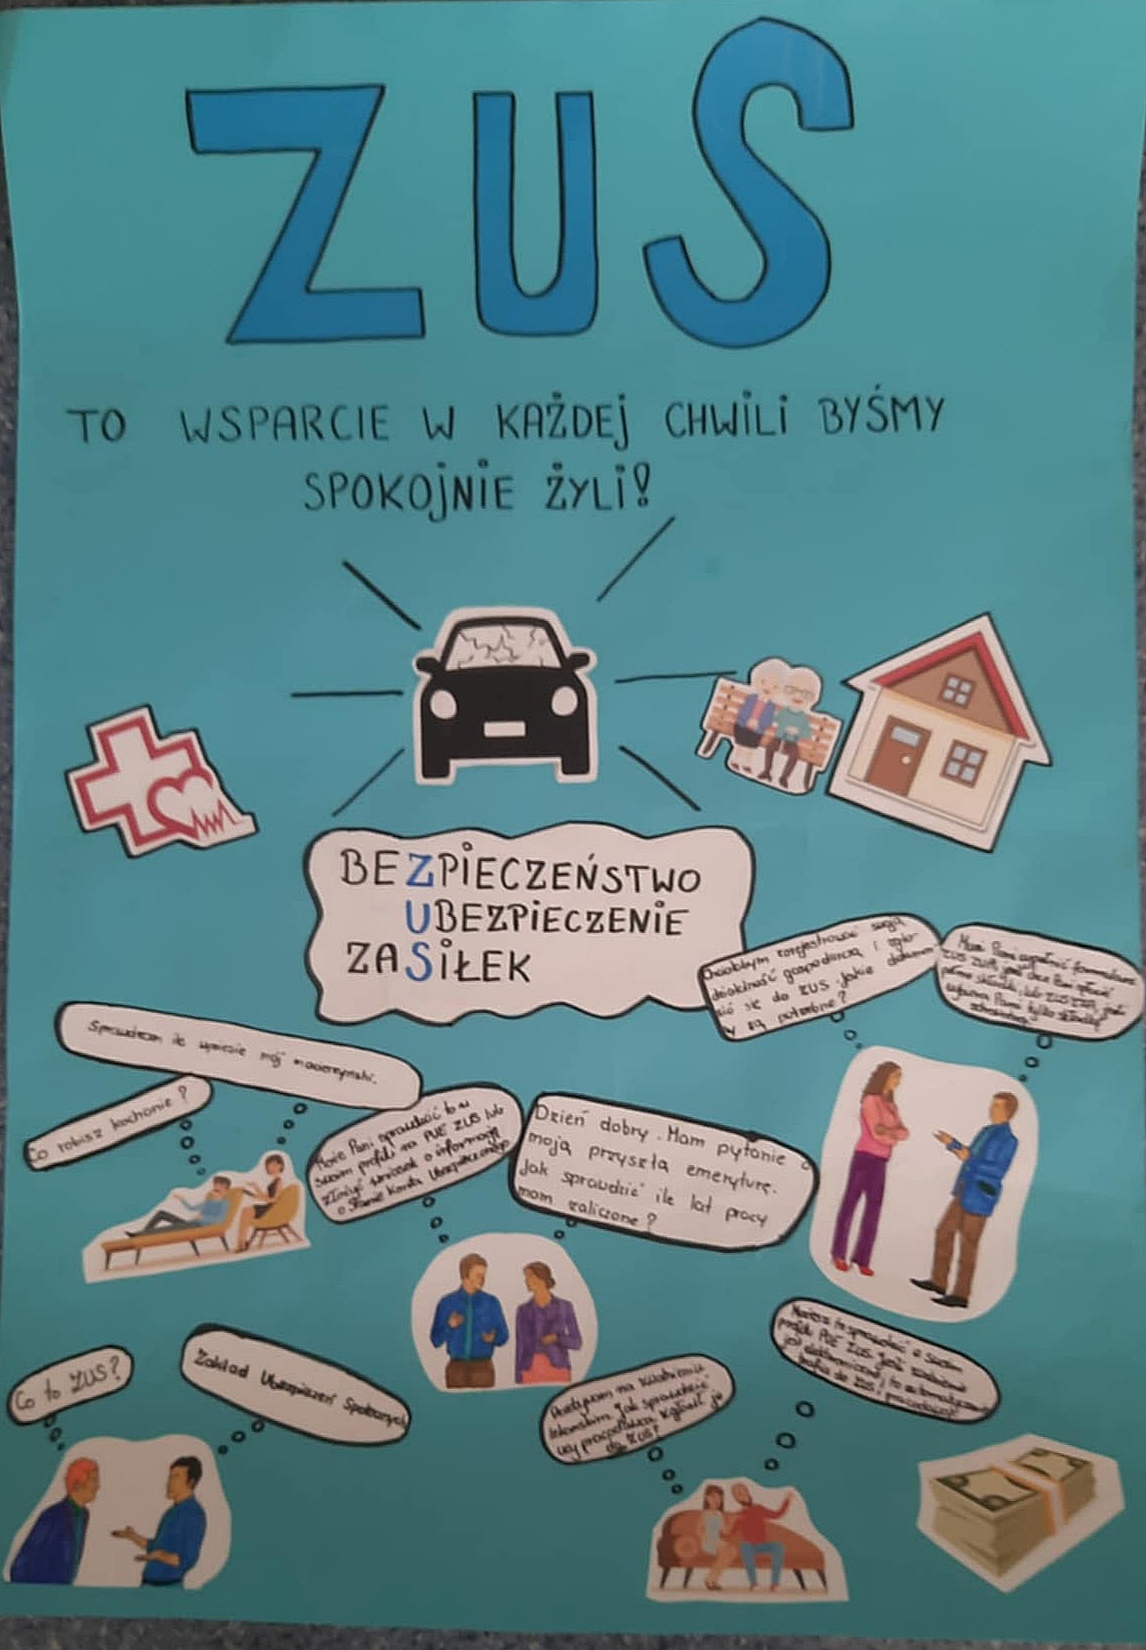 ZUS
TO WSPARCIE W KAŻDEJ CHWILI BYŚMY
SPOKOJNIE ŻYLI!
BEZPIECZEŃSTWO
UBEZPIECZENIE
ZASIŁEK
Chciałbym zarejestrować swoją
działalność gospodarczą i zgło-
sić się do ZUS. Jakie dokumen
y są potrzebne?
Musi Pani wypełnić formularz
ZUS ZUA, jeśli chce Pani opłacić
pełne składki, lub ZUS ZZA, jeśli
Sprawdzam ile wyniesie mój macierzyński.
Co robisz kochanie?
Może Pani sprawdzić to w
swoim profilu na PUE ZUS lub
złożyć wniosek o informację
o Stanie Konta Ubezpieczonego
Dzień dobry. Mam pytanie o
moją przyszłą emeryturę.
Jak sprawdzić ile lat pracy
mam zaliczone?
Co to ZUS?
Zakład Ubezpieczeń Społecznych
jak sprawdzić
czy pracodawca zgłosił ją
do ZUS?
Możesz to sprawdzić w swoim
profilu PUE ZUS.